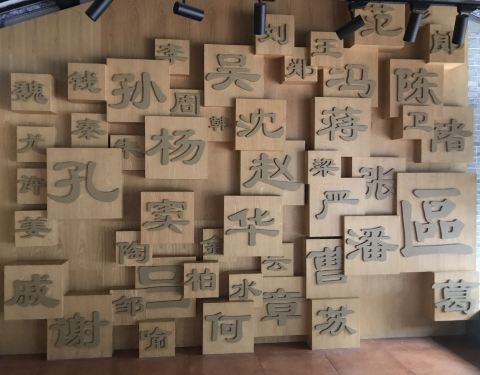 刘
王
范
李
吴
郑
冯
魏
钱
孙
周
陈
韩
沈
蒋
卫
褚
尤
秦
朱
杨
赵
梁
张
许
孔
严
姜
窦
华
區
陶
金
潘
戚
吕
柏
云
曹
水
葛
邹
谢
何
章
苏
喻